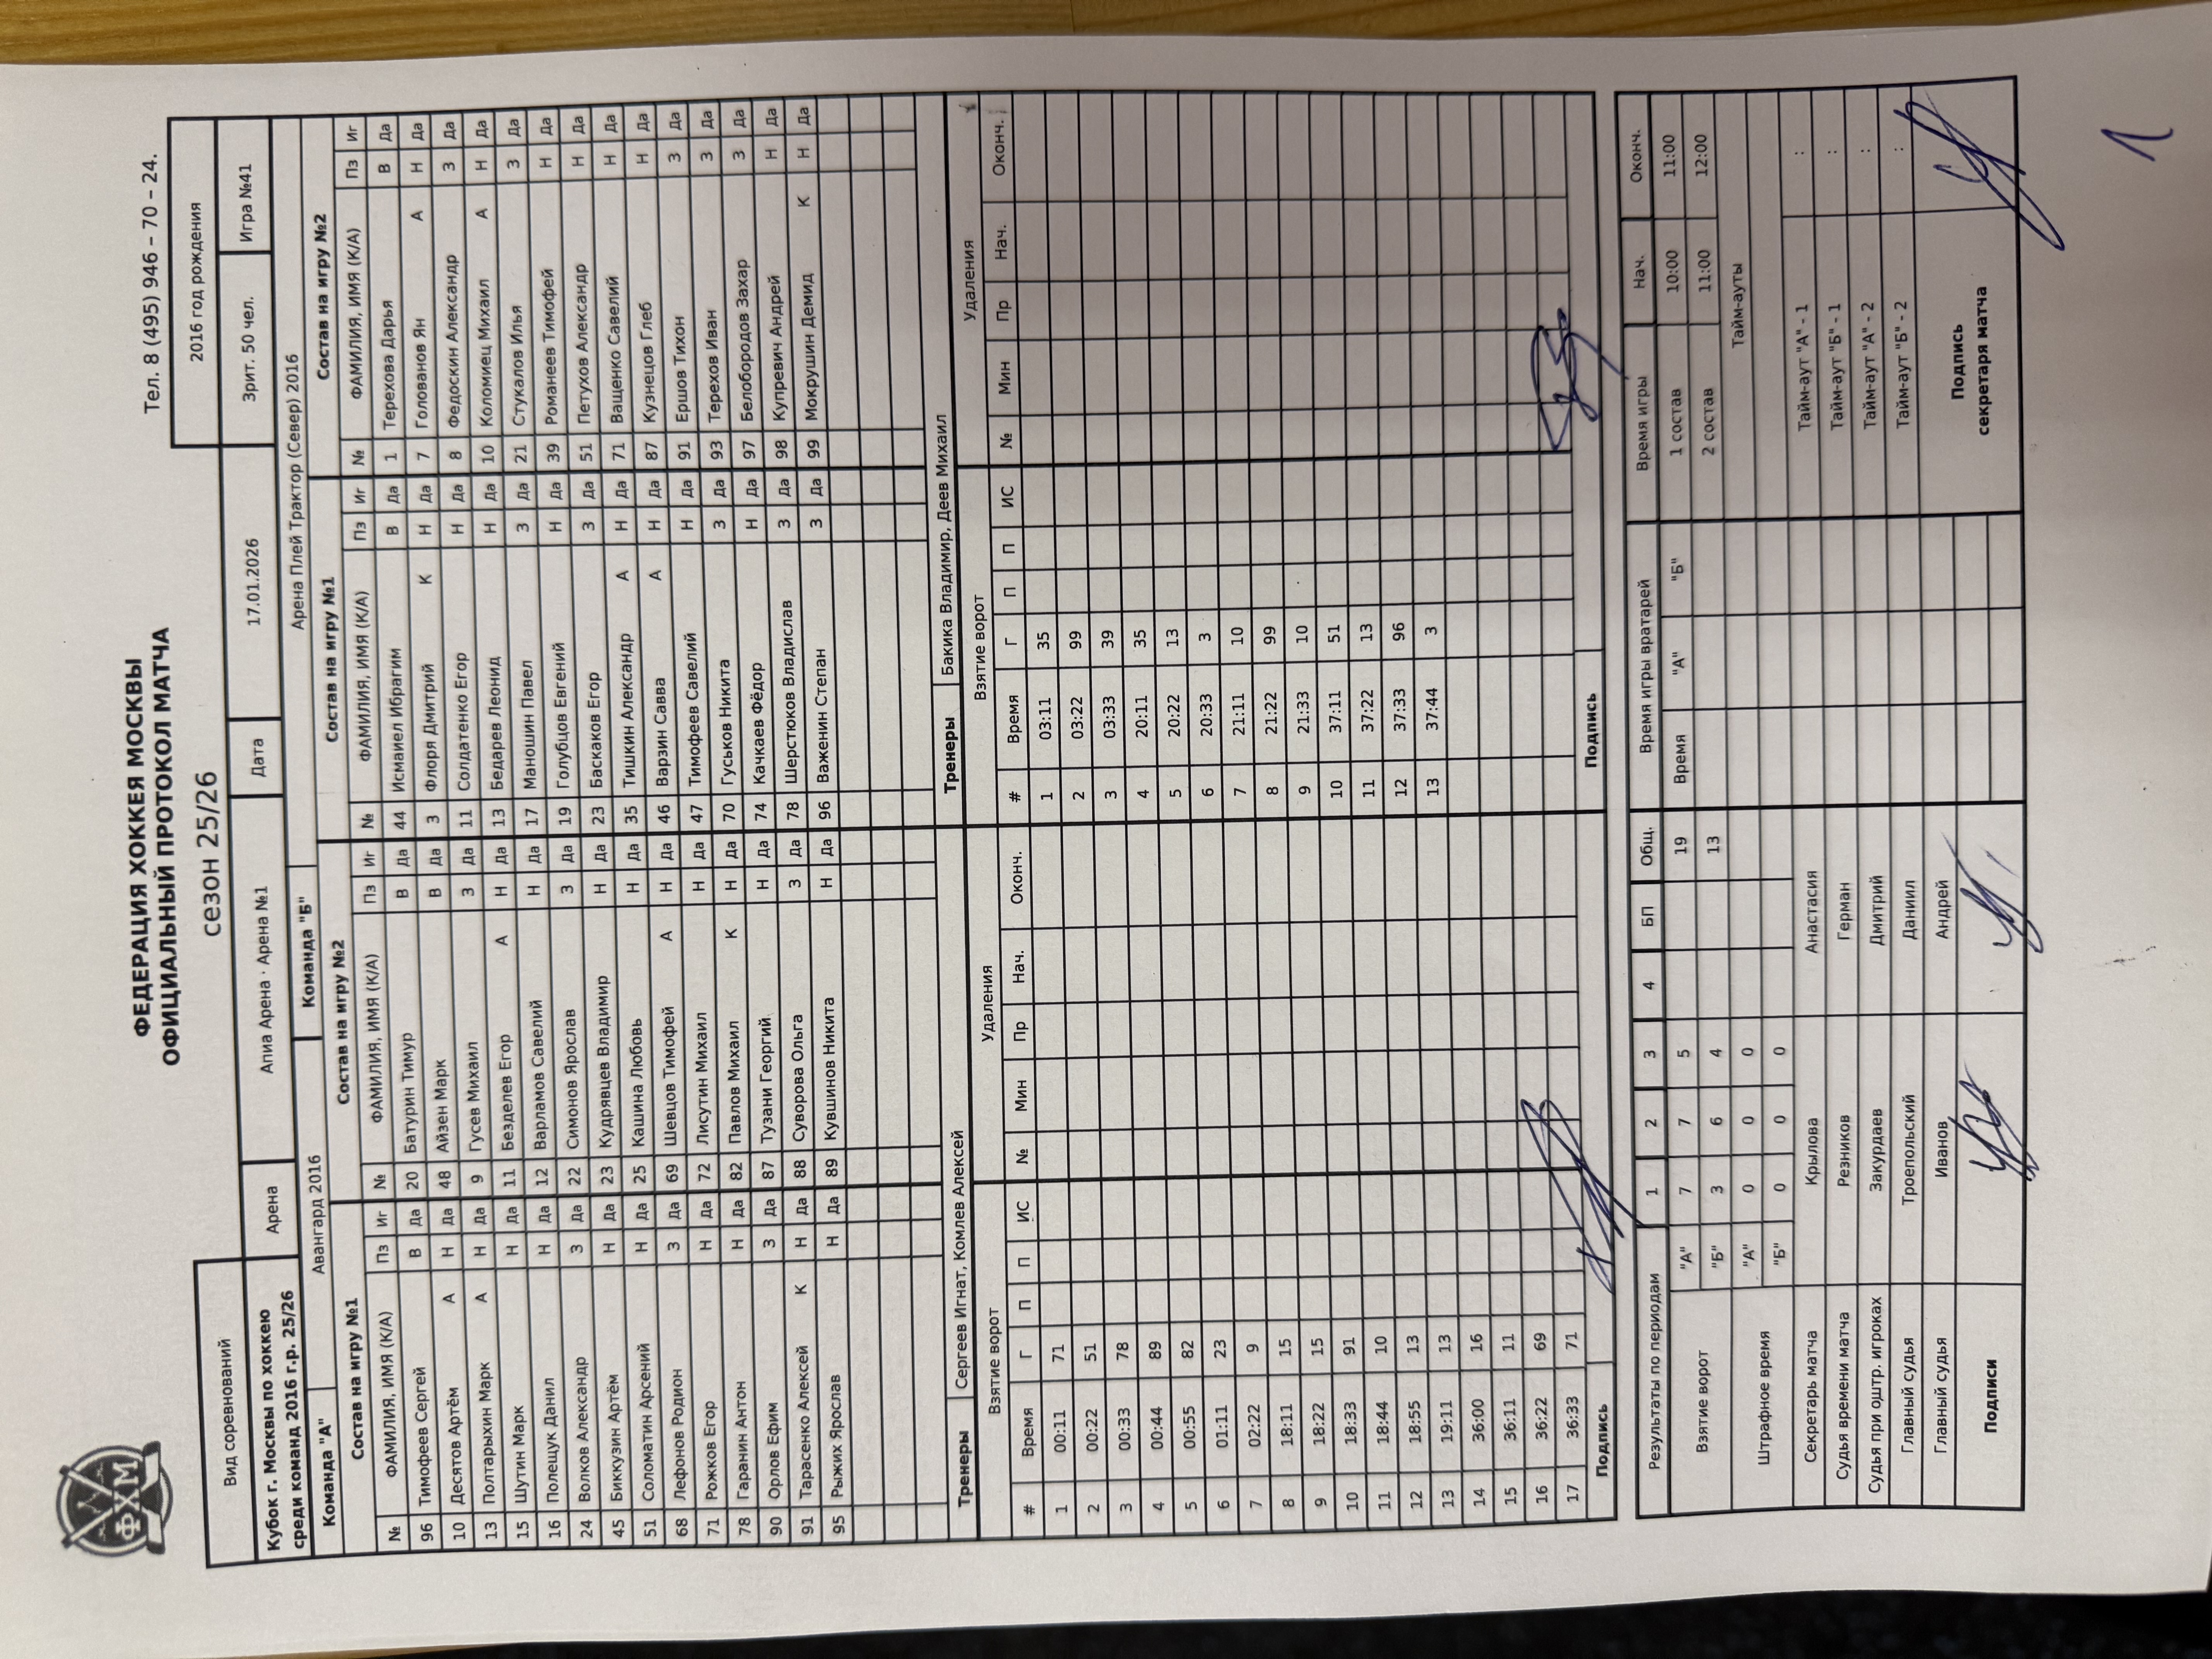 ФХМ
ФЕДЕРАЦИЯ ХОККЕЯ МОСКВЫ
ОФИЦИАЛЬНЫЙ ПРОТОКОЛ МАТЧА
сезон 25/26
Тел. 8 (495) 946 – 70 – 24.
Вид соревнований
2016 год рождения
Кубок г. Москвы по хоккею
среди команд 2016 г.р. 25/26
Арена Апиа Арена · Арена №1 Дата 17.01.2026 Зрит. 50 чел. Игра №41
Команда "А" Авангард 2016 Команда "Б" Арена Плей Трактор (Север) 2016
Состав на игру №1 Состав на игру №2 Состав на игру №1 Состав на игру №2
№ ФАМИЛИЯ, ИМЯ (К/А) Пз Иг № ФАМИЛИЯ, ИМЯ (К/А) Пз Иг № ФАМИЛИЯ, ИМЯ (К/А) Пз Иг № ФАМИЛИЯ, ИМЯ (К/А) Пз Иг
96 Тимофеев Сергей В Да 20 Батурин Тимур В Да 44 Исмаиел Ибрагим В Да 1 Терехова Дарья В Да
10 Десятов Артём А Н Да 48 Айзен Марк В Да 3 Флоря Дмитрий К Н Да 7 Голованов Ян А Н Да
13 Полтарыхин Марк А Н Да 9 Гусев Михаил З Да 11 Солдатенко Егор Н Да 8 Федоскин Александр З Да
15 Шутин Марк Н Да 11 Безделев Егор А Н Да 13 Бедарев Леонид Н Да 10 Коломиец Михаил А Н Да
16 Полещук Данил Н Да 12 Варламов Савелий Н Да 17 Маношин Павел З Да 21 Стукалов Илья З Да
24 Волков Александр З Да 22 Симонов Ярослав З Да 19 Голубцов Евгений Н Да 39 Романеев Тимофей Н Да
45 Биккузин Артём Н Да 23 Кудрявцев Владимир Н Да 23 Баскаков Егор З Да 51 Петухов Александр Н Да
51 Соломатин Арсений Н Да 25 Кашина Любовь Н Да 35 Тишкин Александр А Н Да 71 Ващенко Савелий Н Да
68 Лефонов Родион З Да 69 Шевцов Тимофей А Н Да 46 Варзин Савва А Н Да 87 Кузнецов Глеб Н Да
71 Рожков Егор Н Да 72 Лисутин Михаил Н Да 47 Тимофеев Савелий Н Да 91 Ершов Тихон З Да
78 Гаранин Антон Н Да 82 Павлов Михаил К Н Да 70 Гуськов Никита З Да 93 Терехов Иван З Да
90 Орлов Ефим З Да 87 Тузани Георгий Н Да 74 Качкаев Фёдор Н Да 97 Белобородов Захар З Да
91 Тарасенко Алексей К Н Да 88 Суворова Ольга З Да 78 Шерстюков Владислав З Да 98 Купревич Андрей Н Да
95 Рыжих Ярослав Н Да 89 Кувшинов Никита Н Да 96 Важенин Степан З Да 99 Мокрушин Демид К Н Да
Тренеры Сергеев Игнат, Комлев Алексей Тренеры Бакика Владимир, Деев Михаил
Взятие ворот Удаления Взятие ворот Удаления
# Время Г П П ИС № Мин Пр Нач. Оконч. # Время Г П П ИС № Мин Пр Нач. Оконч.
1 00:11 71 1 03:11 35
2 00:22 51 2 03:22 99
3 00:33 78 3 03:33 39
4 00:44 89 4 20:11 35
5 00:55 82 5 20:22 13
6 01:11 23 6 20:33 3
7 02:22 9 7 21:11 10
8 18:11 15 8 21:22 99
9 18:22 15 9 21:33 10
10 18:33 91 10 37:11 51
11 18:44 10 11 37:22 13
12 18:55 13 12 37:33 96
13 19:11 13 13 37:44 3
14 36:00 16
15 36:11 11
16 36:22 69
17 36:33 71
Подпись Подпись
Результаты по периодам 1 2 3 4 БП Общ. Время игры вратарей Время игры Нач. Оконч.
Взятие ворот "А" 7 7 5 19 Время "А" "Б" 1 состав 10:00 11:00
"Б" 3 6 4 13 2 состав 11:00 12:00
Штрафное время "А" 0 0 0 Тайм-ауты
"Б" 0 0 0
Секретарь матча Крылова Анастасия Тайм-аут "А" - 1 :
Судья времени матча Резников Герман Тайм-аут "Б" - 1 :
Судья при оштр. игроках Закурдаев Дмитрий Тайм-аут "А" - 2 :
Главный судья Троепольский Даниил Тайм-аут "Б" - 2 :
Главный судья Иванов Андрей
Подписи
Подпись
секретаря матча